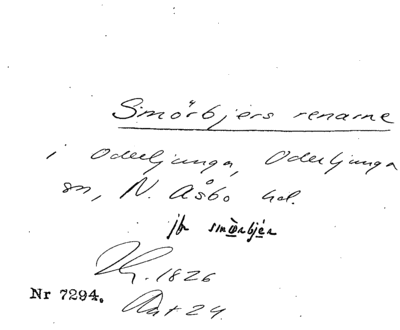 Smörbjers renarne
i Oderljunga, Oderljunga
sn, N. Åsbo hd.
jfr smœrbjér
1826
Nr 7294. Akt 24